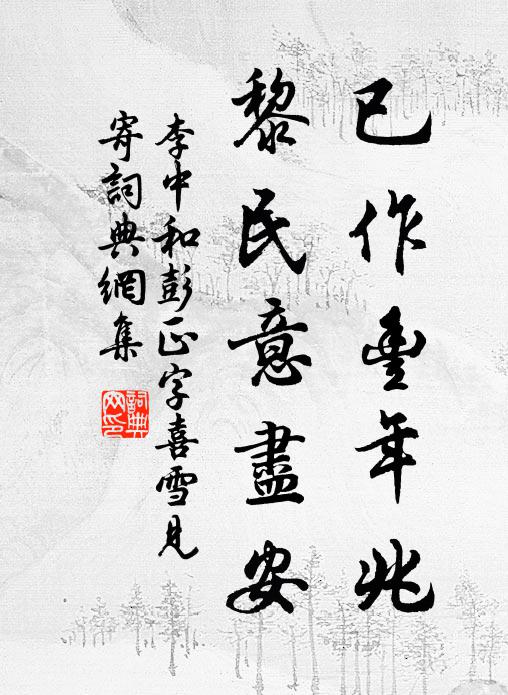 已作豐年兆
黎民意盡安
李中和彭正字喜雪見
寄詞典網集
詞典
网印